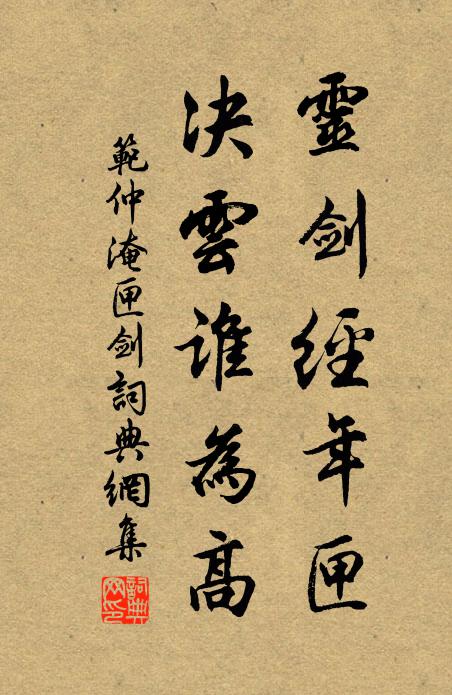 靈劍經年匣
決雲誰為高
範仲淹匣劍詞典網集
詞典网印